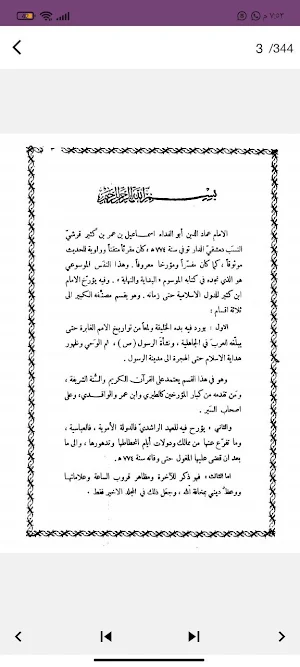 ٧:٥٢ م
3 /344
بسم الله الرحمن الرحيم
الامام عماد الدين أبو الفداء اسماعيل بن عمر بن كثير قرشيّ
النسب دمشقيّ الدار توفي سنة ٧٧٤ ه كان مقرئاً متقناً وراوية للحديث
موثوقاً ، كما كان مفسّراً ومؤرخا معروفاً . وهذا النفَس الموسوعي
هو الذي نجده في كتابه الموسوم « البداية والنهاية » . وفيه يؤرّخ الامام
ابن كثير للدول الاسلامية حتى زمانه . وهو يقسم مصنّفه الكبير الى
ثلاثة اقسام :
الاول : يورد فيه بدء الخليقة ولمعاً من تواريخ الامم الغابرة حتى
يبلّغه العرب في الجاهلية ، ونشأة الرسول ( ص ) ، ثم الوحي وظهور
هداية الاسلام حتى الهجرة الى مدينة الرسول .
وهو في هذا القسم يعتمد على القرآن الكريم والسنّة الشريفة ،
ومن تقدمه من كبار المؤرخين كالطبري وابن عمر والواقدي، وعلى
اصحاب السير .
والثاني : يؤرخ فيه للعهد الراشديّ فالدولة الأموية ، فالعباسية ،
وما تفرّع عنها من ممالك ودولات أيام انحطاطها وتدهورها ، والى ما
بعد ان قضى عليها المغول حتى وفاته سنة ٧٧٤ ه .
اما الثالث : فهو ذكر للآخرة ومظاهر قروب الساعة وعلاماتها
ووعظٌ ديني بمخافة الله ، وجعل ذلك في المجلد الاخير فقط .